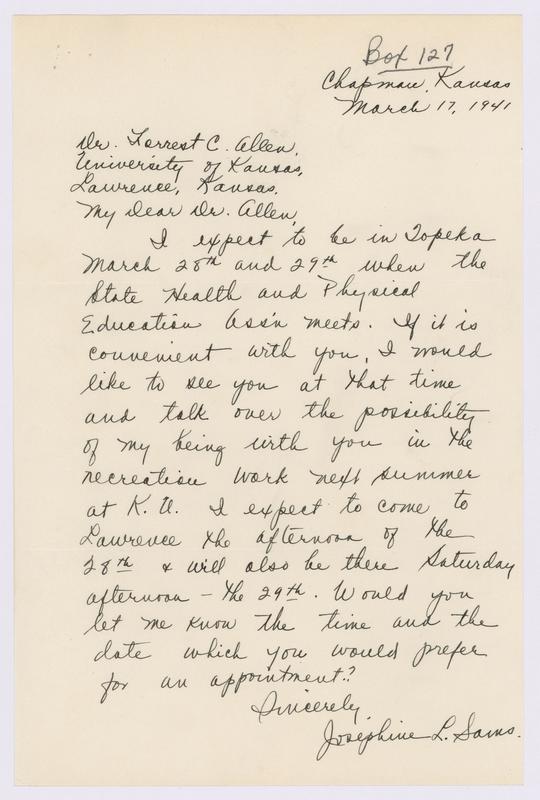 Box 127
Chapman, Kansas
March 17, 1941
Dr. Forrest C. Allen,
University of Kansas,
Lawrence, Kansas.
My Dear Dr. Allen,
I expect to be in Topeka
March 28th and 29th when the
State Health and Physical
Education Ass'n meets. If it is
convenient with you, I would
like to see you at that time
and talk over the possibility
of my being with you in the
recreation work next summer
at K. U. I expect to come to
Lawrence the afternoon of the
28th & will also be there Saturday
afternoon - the 29th. Would you
let me know the time and the
date which you would prefer
for an appointment?
Sincerely,
Josephine L. Sams.